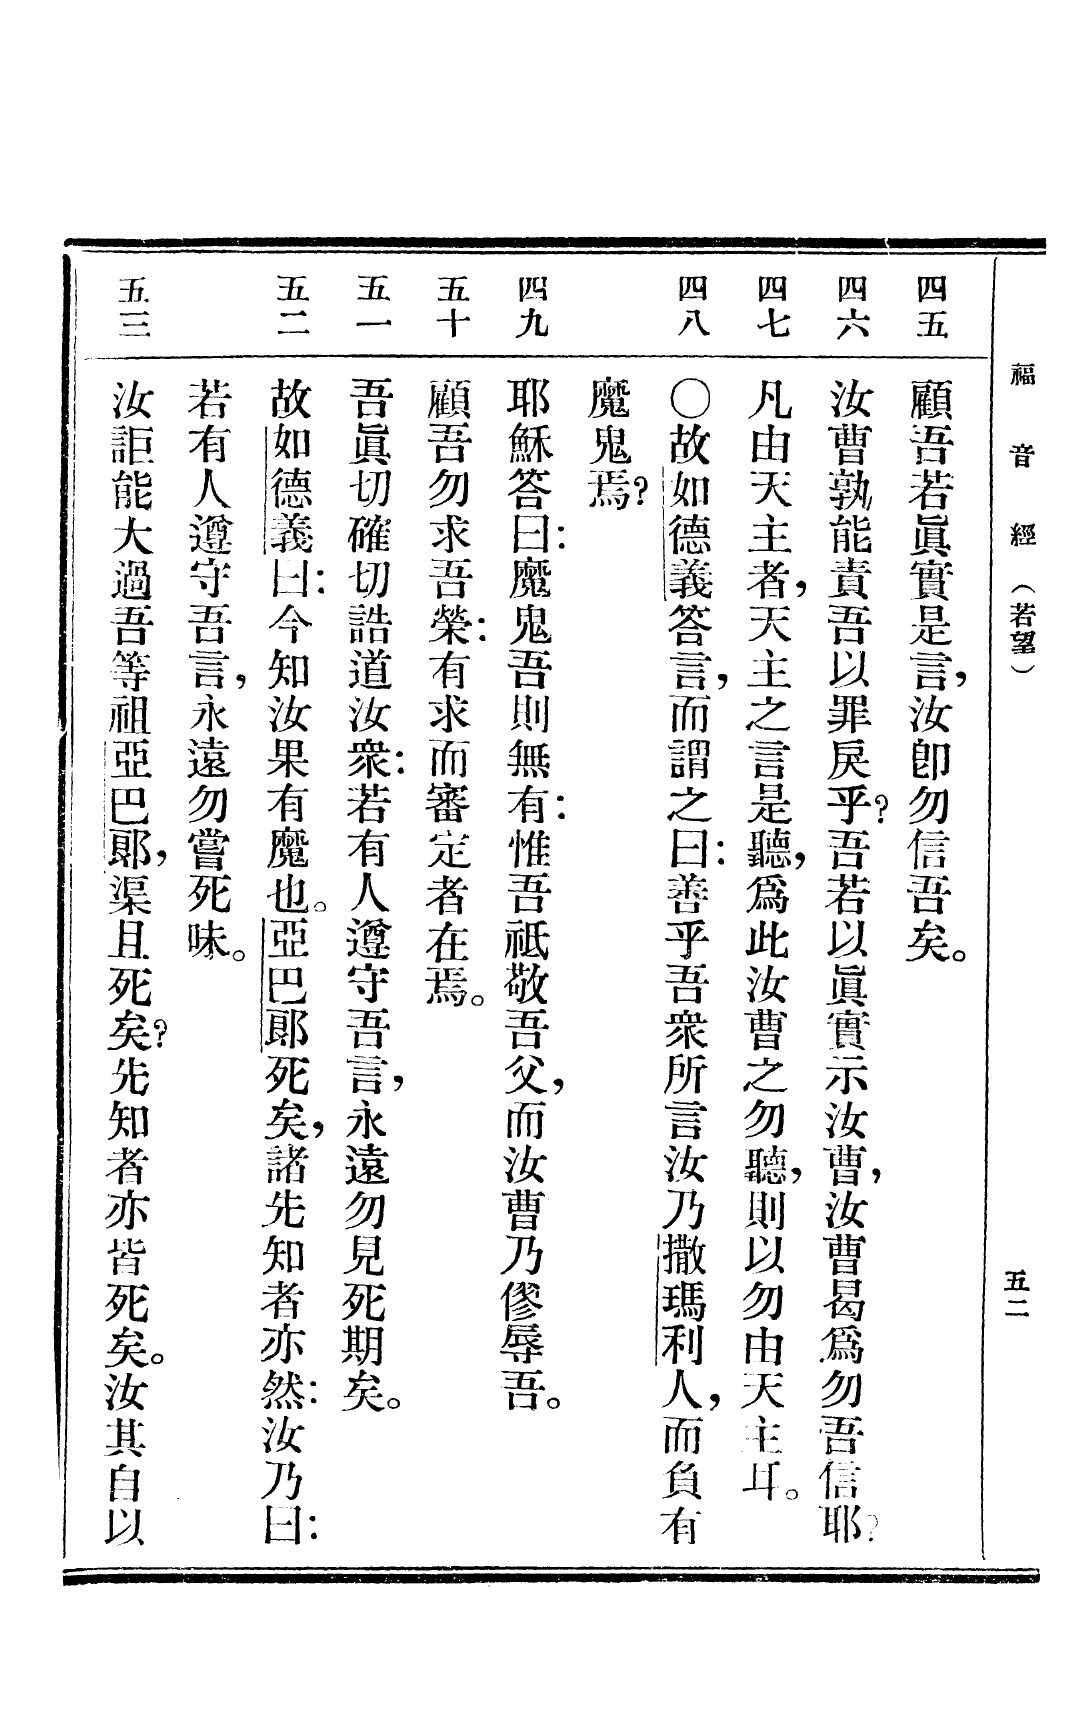 福音經（若望）　五二
四五　顧吾若眞實是言，汝卽勿信吾矣。
四六　汝曹孰能責吾以罪戾乎？吾若以眞實示汝曹，汝曹曷爲勿吾信耶？
四七　凡由天主者，天主之言是聽，爲此汝曹之勿聽，則以勿由天主耳。
四八　〇故如德義答言，而謂之曰：善乎吾衆所言汝乃撒瑪利人，而負有
魔鬼焉？
四九　耶穌答曰：魔鬼吾則無有：惟吾祇敬吾父，而汝曹乃僇辱吾。
五十　顧吾勿求吾榮：有求而審定者在焉。
五一　吾眞切確切誥道汝衆：若有人遵守吾言，永遠勿見死期矣。
五二　故如德義曰：今知汝果有魔也。亞巴郞死矣，諸先知者亦然：汝乃曰：
若有人遵守吾言，永遠勿嘗死味。
五三　汝詎能大過吾等祖亞巴郞，渠且死矣？先知者亦皆死矣。汝其自以